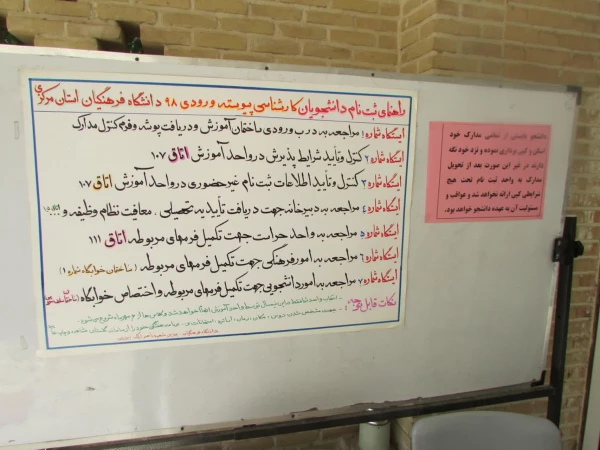 راهنمای ثبت نام دانشجویان کارشناسی پیوسته ورودی ۹۸ دانشگاه فرهنگیان استان مرکزی
ایستگاه شماره ۱ مراجعه به درب ورودی ساختمان آموزش و دریافت پوشه و فرم کنترل مدارک
ایستگاه شماره ۲ کنترل و تأیید شرایط پذیرش در واحد آموزش اتاق ۱۰۷
ایستگاه شماره ۳ کنترل و تأیید اطلاعات ثبت نام غیر حضوری در واحد آموزش اتاق ۱۰۷
ایستگاه شماره ۴ مراجعه به دبیرخانه جهت دریافت تأییدیه تحصیلی، معافیت نظام وظیفه و...
ایستگاه شماره ۵ مراجعه به واحد حراست جهت تکمیل فرمهای مربوطه اتاق ۱۱۱
ایستگاه شماره ۶ مراجعه به امور فرهنگی جهت تکمیل فرمهای مربوطه (ساختمان خوابگاه شماره ۱)
ایستگاه شماره ۷ مراجعه به امور دانشجویی جهت تکمیل فرمهای مربوطه و اختصاص خوابگاه
نکات قابل توجه:
دانشجو بایستی از تمامی مدارک خود
اسکن و کپی برداری نموده و نزد خود نگه
دارند در غیر این صورت بعد از تحویل
مدارک به واحد ثبت نام تحت هیچ
شرایطی کپی ارائه نخواهد شد و عواقب و
مسئولیت آن به عهده دانشجو خواهد بود.